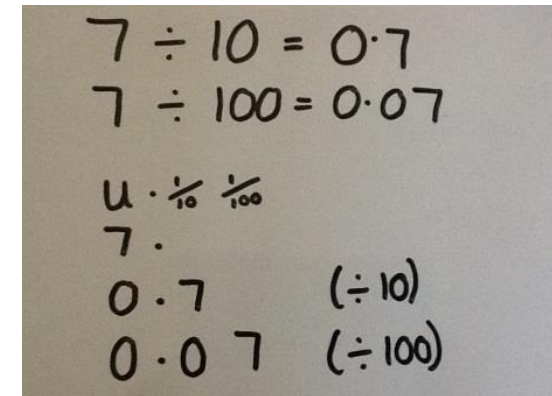 7 ÷ 10 = 0·7
7 ÷ 100 = 0·07
U · 1/10 1/100
7 ·
0 · 7 (÷ 10)
0 · 0 7 (÷ 100)